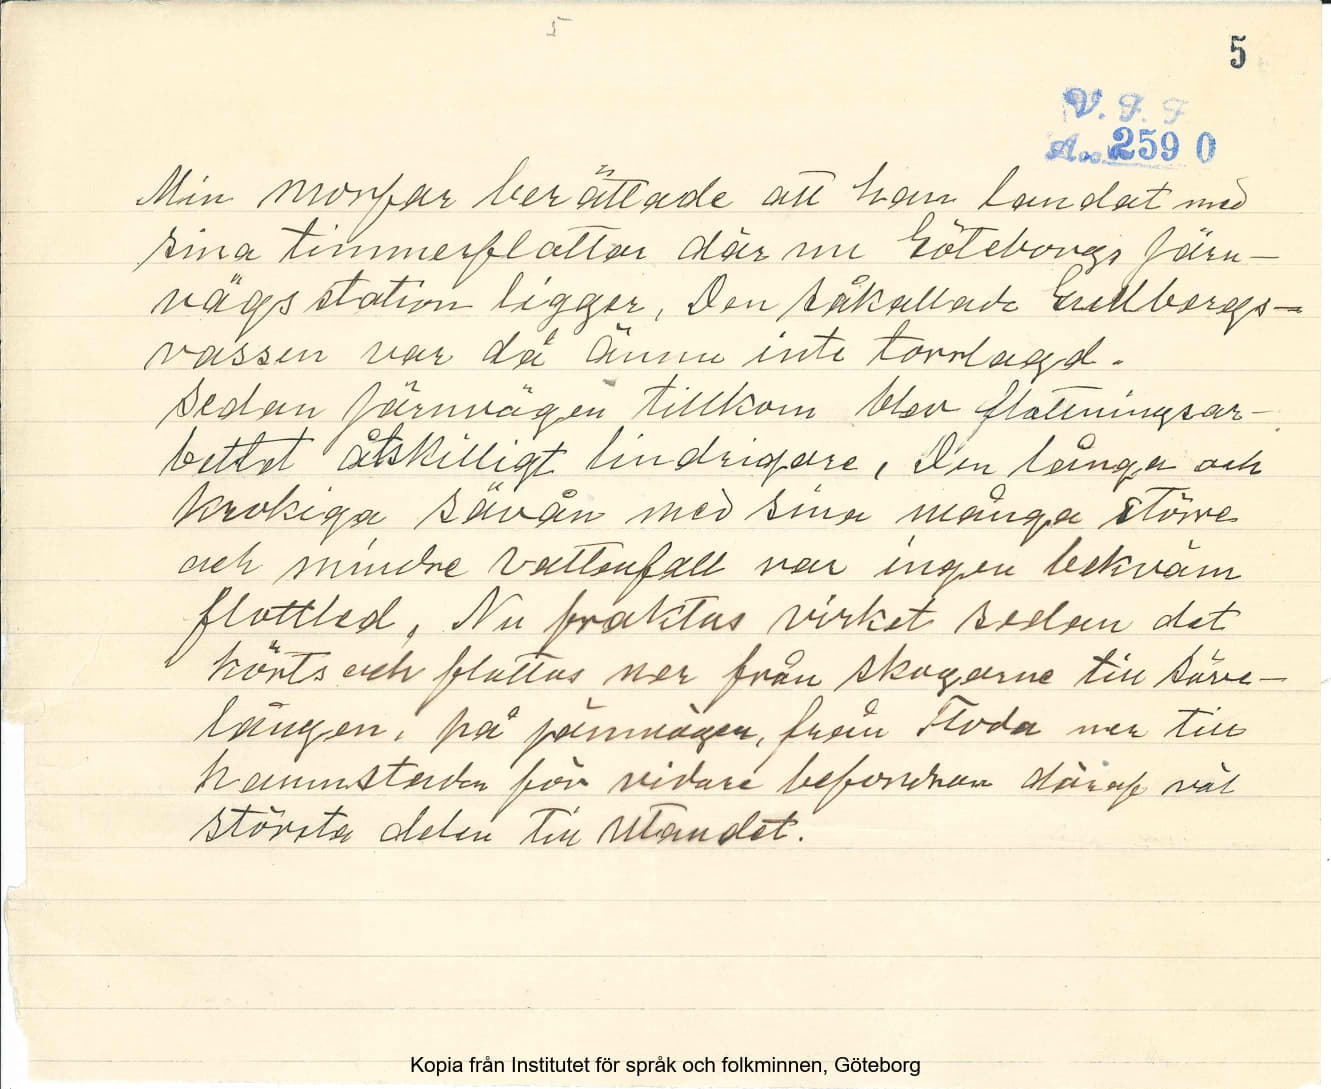 5
5
V. F. F
Acc 2590
Min morfar berättade att han landat med
sina timmerflottar där nu Göteborgs Järn-
vägsstation ligger, Den såkallade Gullbergs-
vassen var då ännu inte torrlagd.
Sedan Järnvägen tillkom blev flottningsar-
betet åtskilligt lindrigare, Den långa och
krokiga Säveån med sina många större
och mindre vattenfall var ingen bekväm
flottled, Nu fraktas virket sedan det
körts och flottas ner från skogarne till Säve-
lången, på järnvägen, från Floda ner till
hamnstaden för vidare befordran däraf väl
största delen till utlandet.
Kopia från Institutet för språk och folkminnen, Göteborg